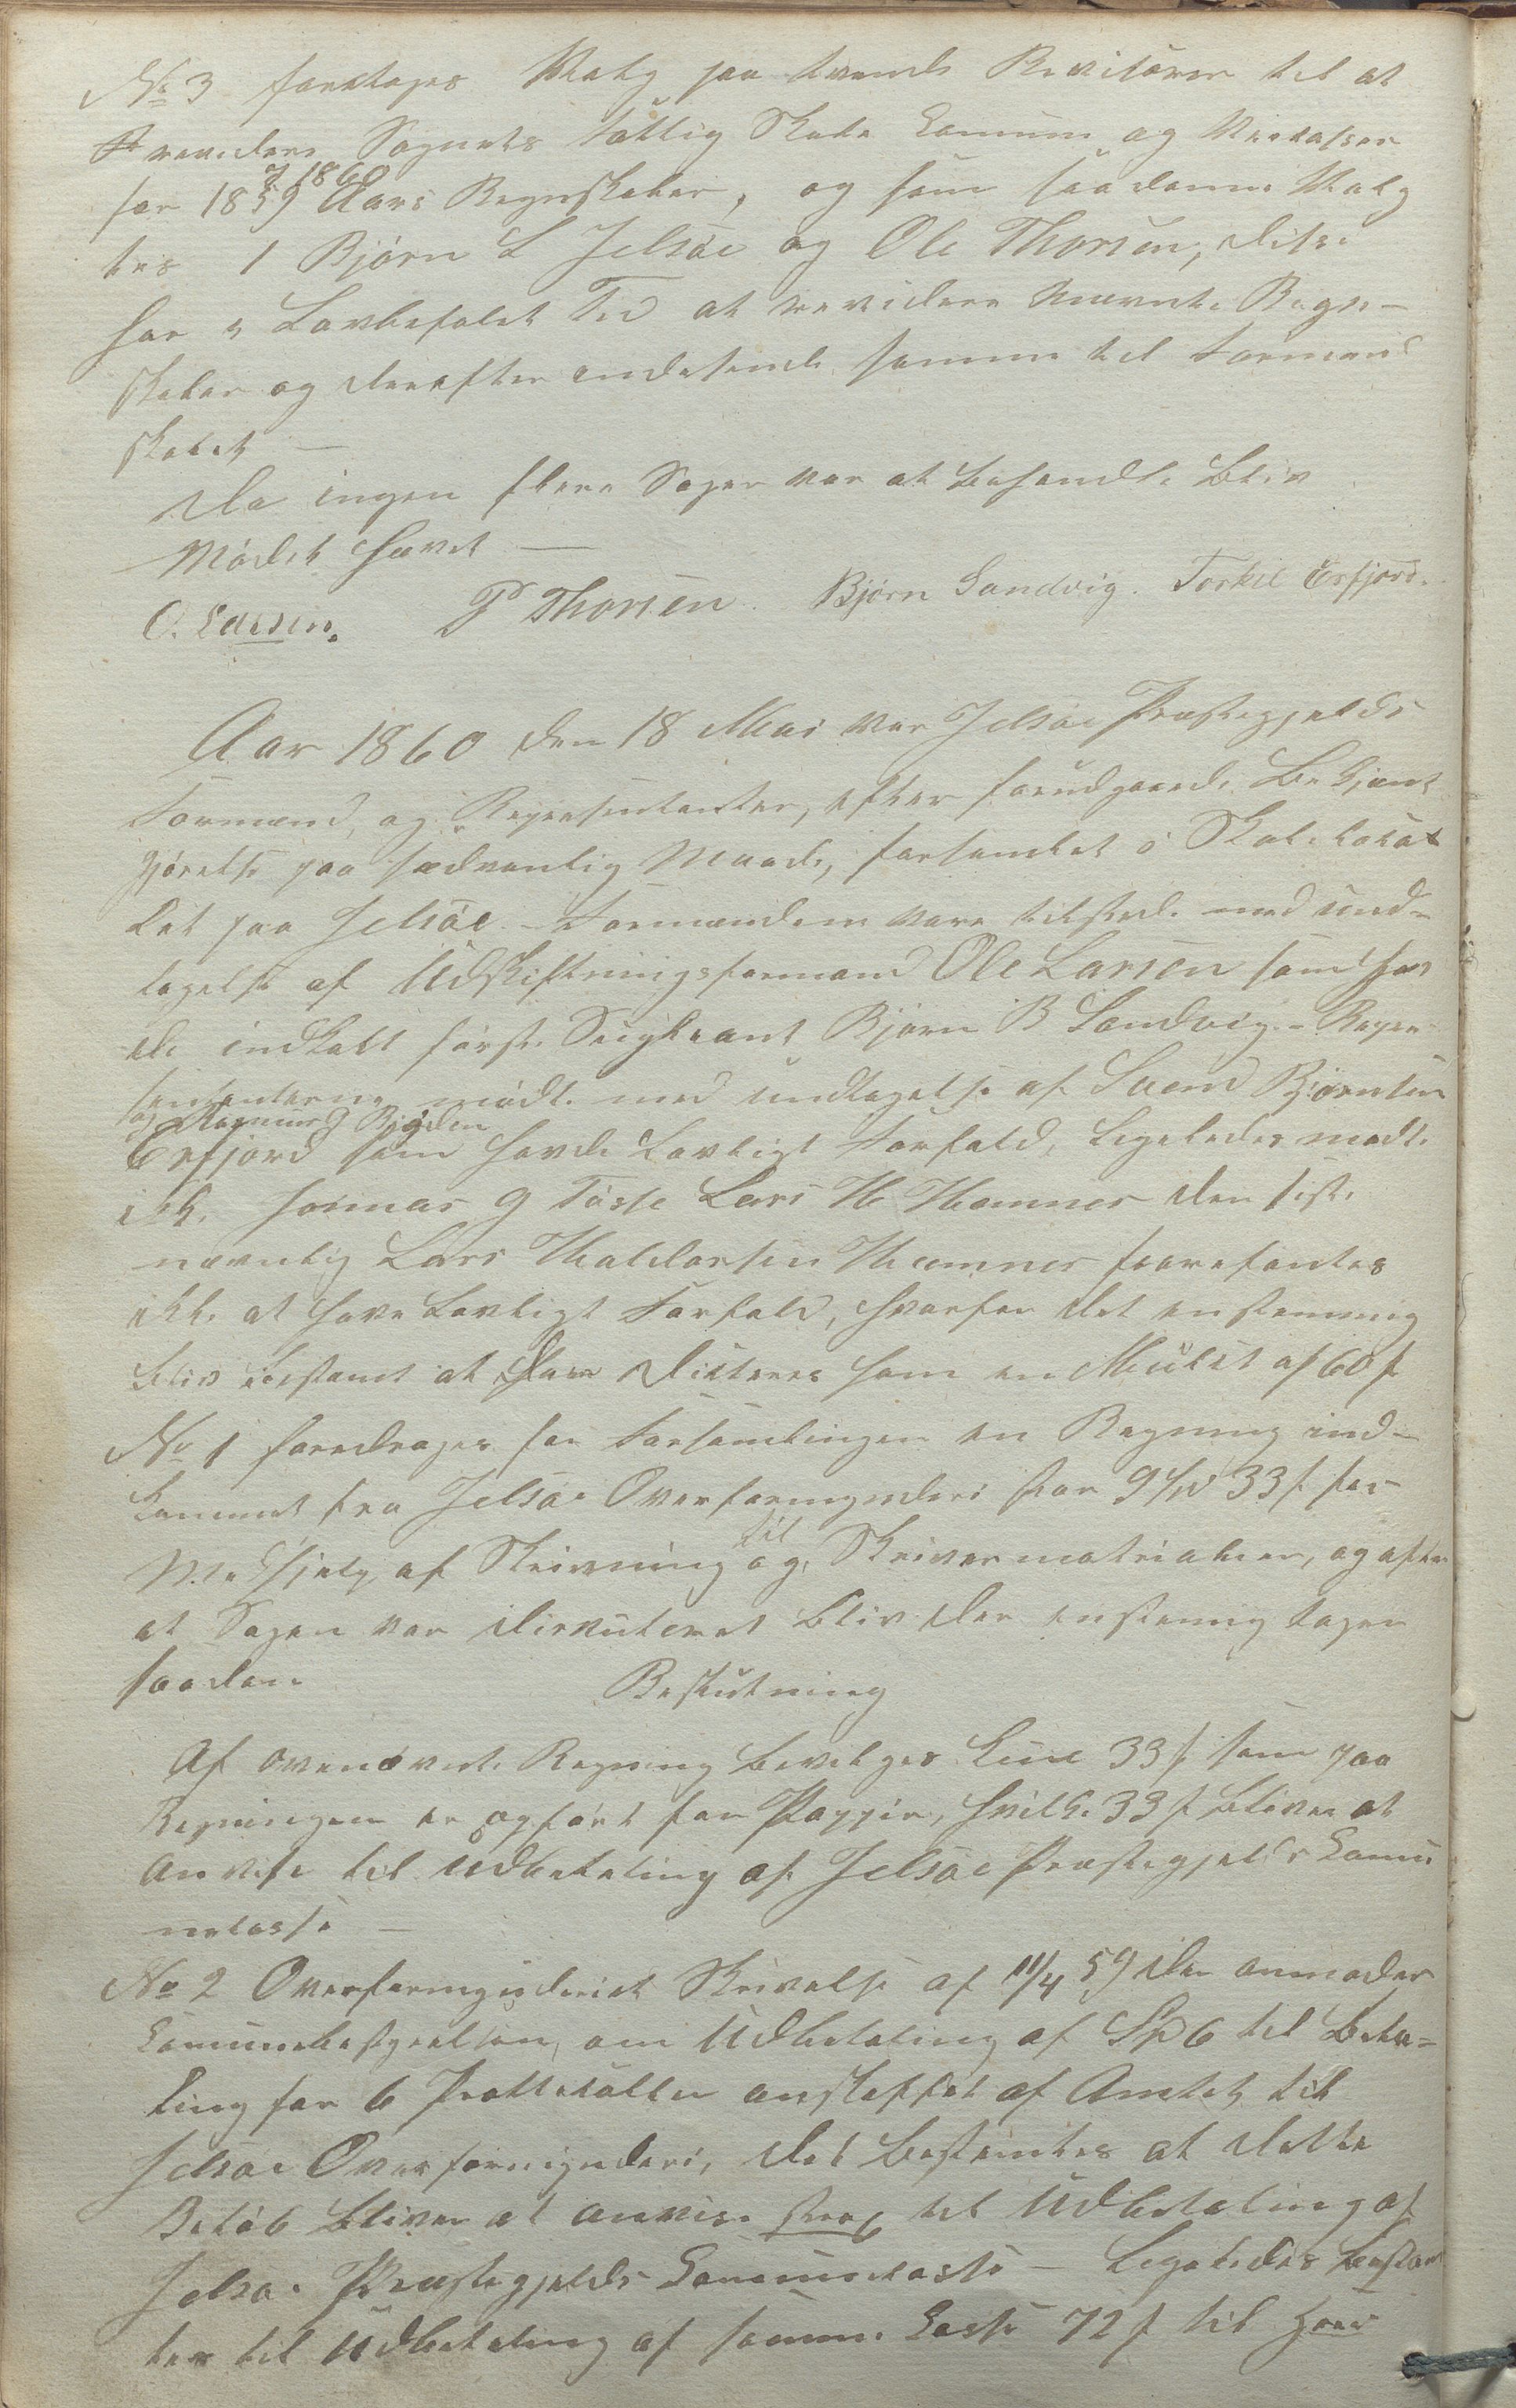 No 3 foretoges Valg paa tvende Revisorer til at
revidere Sognets Comune og
for 1859 & 1860 Aars Regnskaber, og som saadanne Valg
tes 1 Bjørn L Jelsøe og Ole Thorsen, disse
har Lovbefalet Tid at revidere nævnte Regn-
skaber og derefter indsende samme til Formand
skabet —
Da ingen flere Sager var at behandle blev
Mødet hævet —
O. Larsen. P Thorsen. Bjørn Sandvig. Torkil Erfjord.
Aar 1860 den 18 Mai var Jelsøe Præstegjelds
Formænd, og Repræsentanter, efter forudgaaende Bekjent
gjørelse paa sædvanlig Maade, forsamlet i Skolelokal
let paa Jelsøe. - Formændene vare tilstede med und-
tagelse af Udskiftningsformand Ole Larsen som hav
de indkaldt første Suppleant Bjørn B Sandvig. - Repræ
sentanterne mødte med undtagelse af Svend Bjørnsen
og Rasmus J Bjyden
Erfjord som havde Lovligt Forfald, ligeledes mødte
ikke Jonnas G Tøsse Lars H Hamnes den sidst
nævnlig Lars Haldorsen Hamnes formentes
ikke at have Lovligt Forfald, hvorfor det enstemmig
blev bestemt at han dicteres som en Mulct af 60 s
No 1 foredrages for Forsamlingen en Regning ind-
kommet fra Jelsøe Overformynderi stor 9 33 s for
Medhjelp af Skrivning og til Skrivermatrialier, og efter
at Sagen var discuteret blev der enstemmig tagen
saadan Beslutning
Af ovennævnte Regning bevilges kun 33 s som paa
Regningen er opført for Pappir, hvilke 33 s bliver at
anvise til Udbetaling af Jelsøe Præstegjelds Comu
nekasse —
No 2 Overformynderiets Skrivelse af 11/4 59 der anmoder
Comunebestyrelsen, om Udbetaling af Sp 6 til Beta-
ling for 6 Protokoller anskaffet af Amtet til
Jelsøe Overformynderi, det bestemtes at dette
Beløb bliver at anvise strax til Udbetaling af
Jelsøe Præstegjelds Comunekasse — Ligeledes bestem
tes til Udbetaling af samme Casse 72 s til